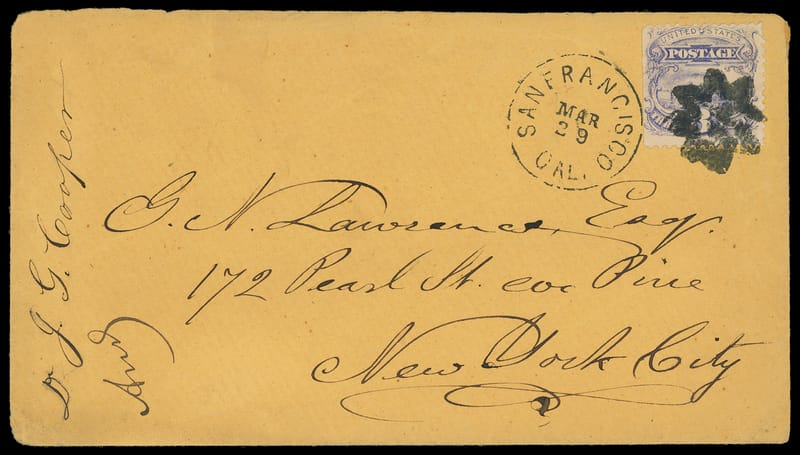 UNITED STATES
POSTAGE
3
SAN FRANCISCO
MAR
29
CAL.
G. N. Lawrence, Esq.
172 Pearl St. cor Pine
New York City
Dr J. G. Cooper
Ans